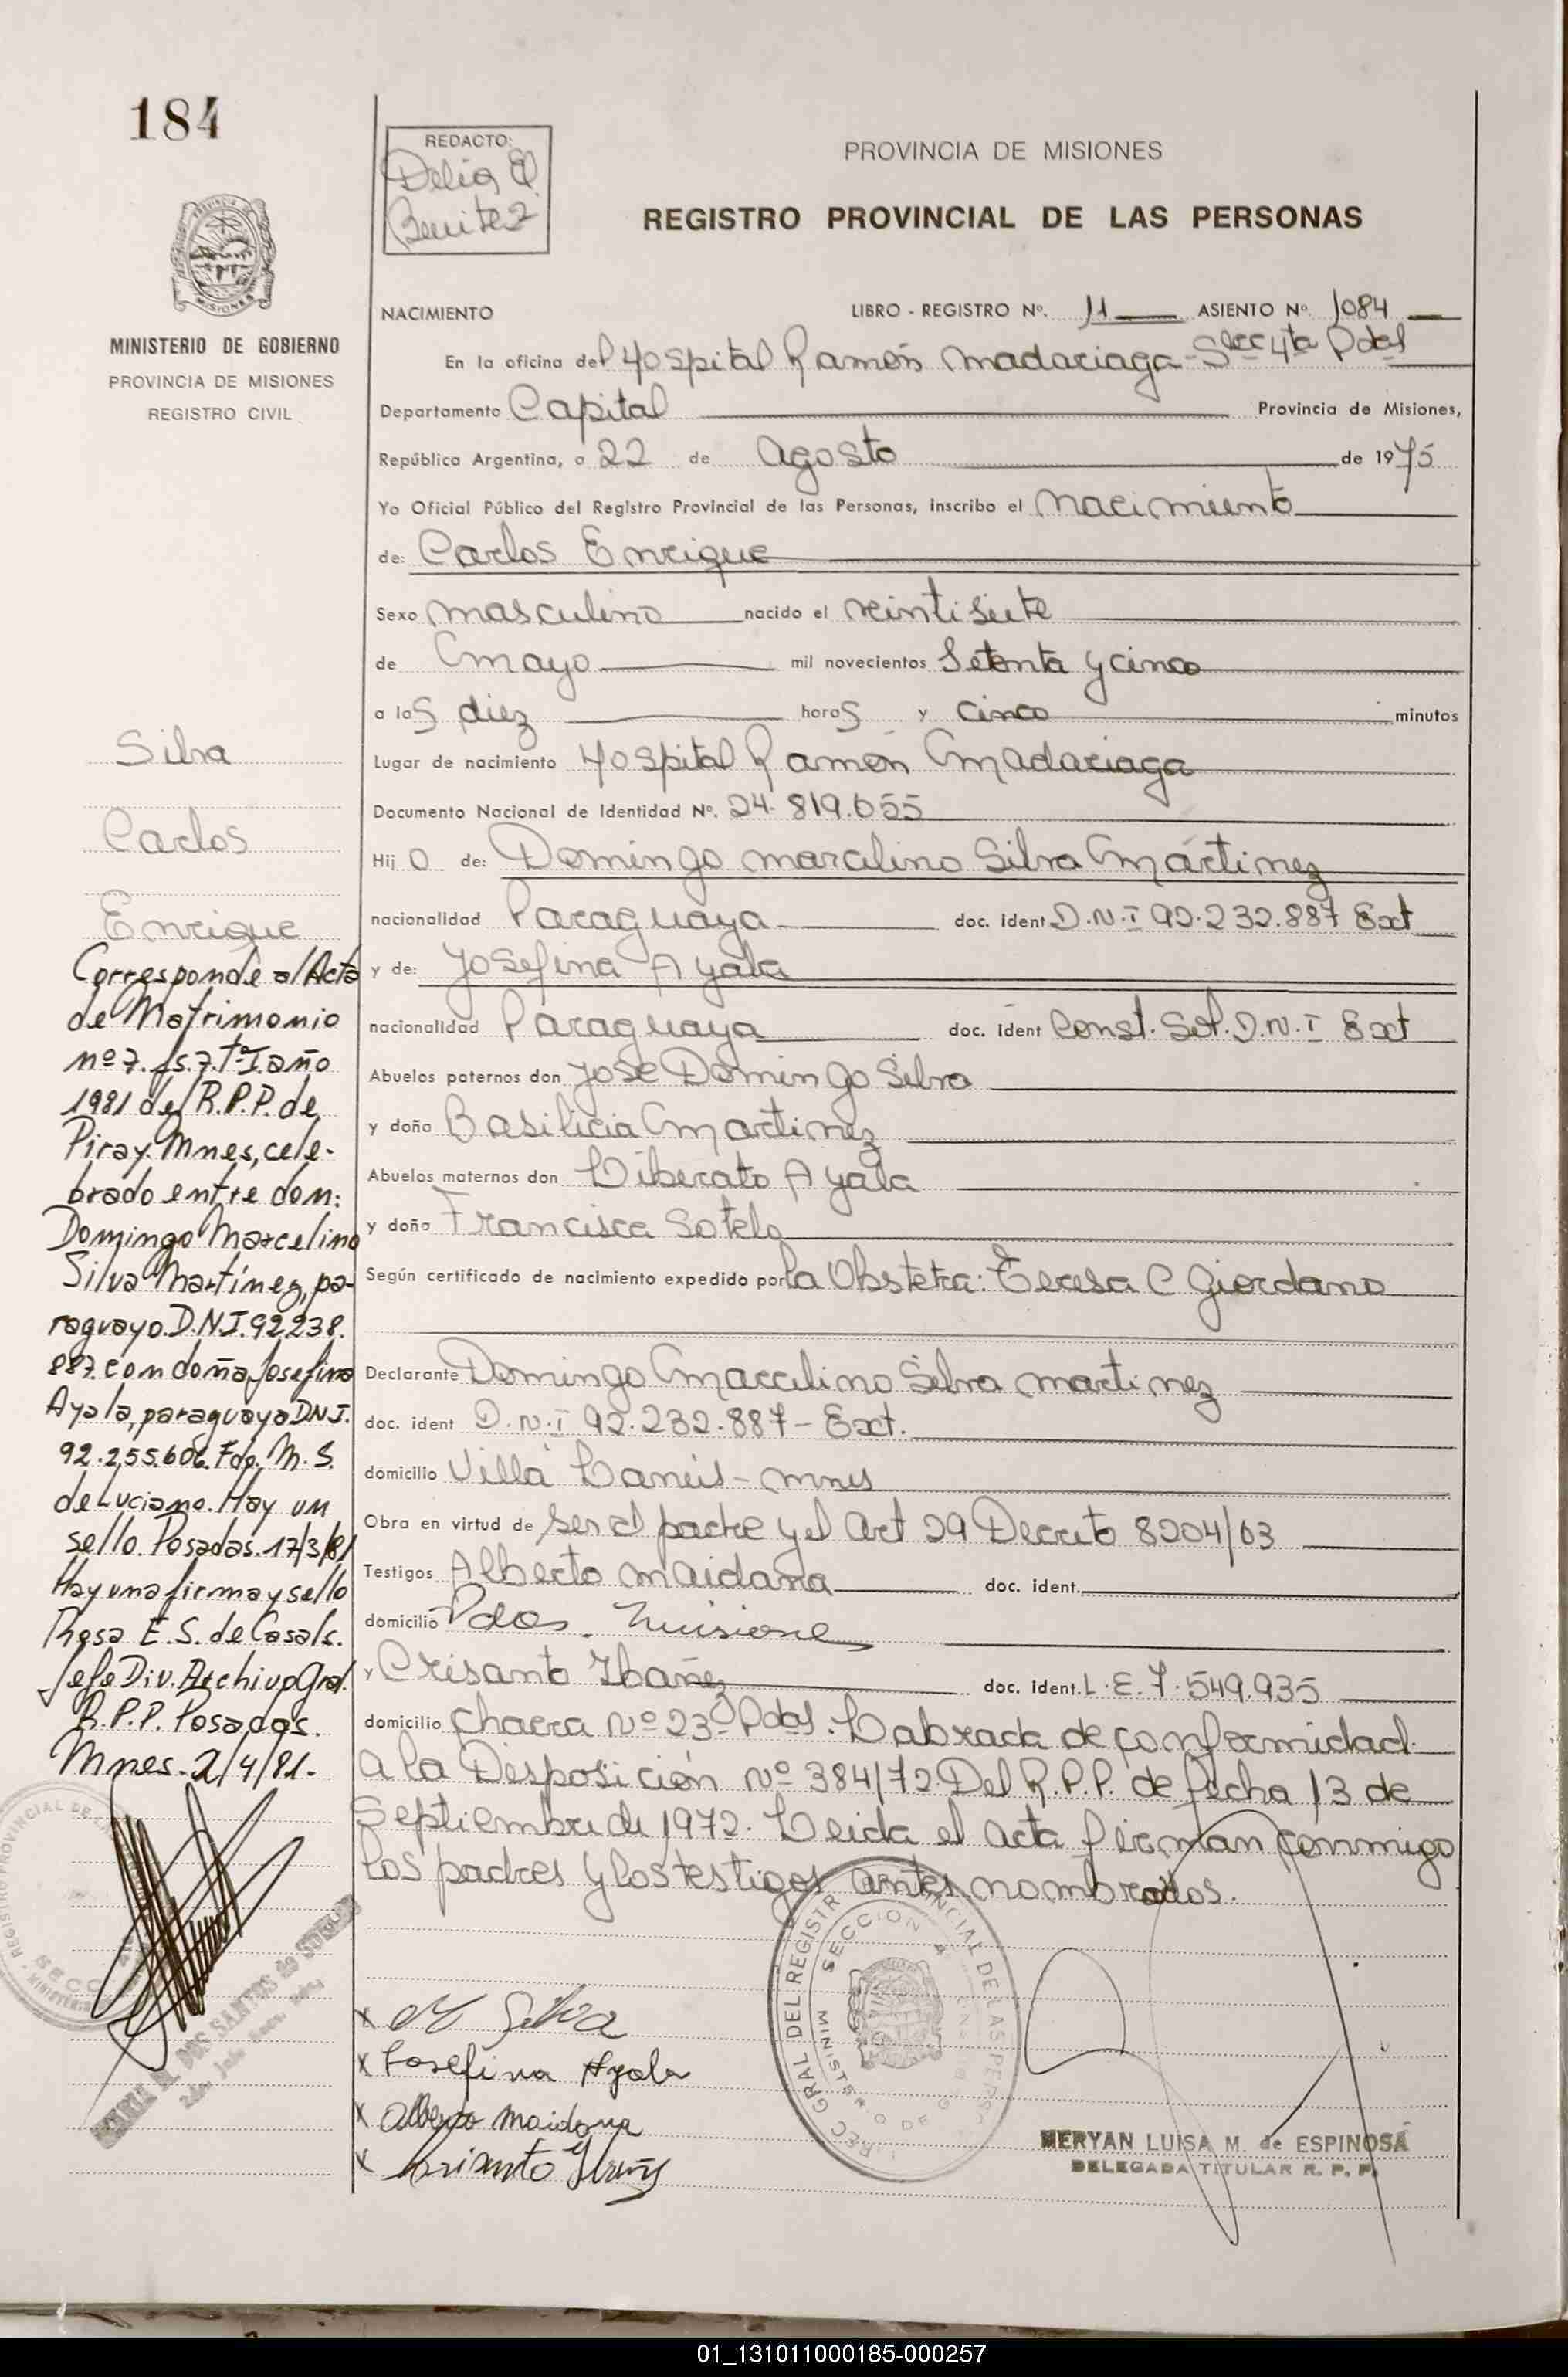 184
REDACTO:
Delia E.
Benitez
PROVINCIA DE MISIONES
REGISTRO PROVINCIAL DE LAS PERSONAS
MINISTERIO DE GOBIERNO
PROVINCIA DE MISIONES
REGISTRO CIVIL
NACIMIENTO LIBRO - REGISTRO Nº. 11 ASIENTO Nº. 1084
En la oficina del Hospital Ramón Madariaga - Secc 4ta Pdas
Departamento Capital Provincia de Misiones,
República Argentina, a 22 de agosto de 1975
Yo Oficial Público del Registro Provincial de las Personas, inscribo el nacimiento
de: Carlos Enrique
Sexo masculino nacido el veintisiete
de mayo mil novecientos Setenta y cinco
a las diez horas y cinco minutos
Lugar de nacimiento Hospital Ramón Madariaga
Documento Nacional de Identidad Nº. 24.819.655
Hijo de: Domingo marcelino Silva Mártinez
nacionalidad Paraguaya doc. ident. D.N.I 92.232.887 Ext
y de: Josefina Ayala
nacionalidad Paraguaya doc. ident Const. Sol. D.N.I Ext
Abuelos paternos don José Domingo Silva
y doña Basilicia Martinez
Abuelos maternos don Liberato Ayala
y doña Francisca Sotelo
Según certificado de nacimiento expedido por la Obstetra: Teresa C Giordano
Declarante Domingo Marcelino Silva martinez
doc. ident D.N.I 92.232.887 - Ext.
domicilio Villa Lanús - mnes
Obra en virtud de ser el padre y el Art 29 Decreto 8204/63
Testigos Alberto maidana doc. ident.
domicilio Pdas. Misiones
y Crisanto Ibañez doc. ident. L.E. 7.549.935
domicilio chacra Nº 23 - Pdas. Labrada de conformidad
a la Disposición Nº 384/72 Del R.P.P. de fecha 13 de
Septiembre de 1972. Leida el acta firman conmigo
los padres y los testigos antes nombrados.
Silva
Carlos
Enrique
Corresponde al Acta
de Matrimonio
nº 7. fs. 7. Tº I. año
1981 del R.P.P. de
Piray. Mnes, cele-
brado entre don:
Domingo Marcelino
Silva Martínez, pa-
raguayo D.N.I. 92.238.
887. con doña Josefina
Ayala, paraguaya DNI.
92.255.606. Fdo. M. S.
de Luciano. Hay un
sello. Posadas. 17/3/81
Hay una firma y sello
Rosa E. S. de Casals.
Jefe Div. Archivo Gral.
R.P.P. Posadas.
Mnes. 2/4/81.
x Silva
x Josefina Ayala
x Alberto Maidana
x Crisanto Ibañez
REC GRAL DEL REGISTRO PROVINCIAL DE LAS PERSONAS
SECCION 4
MINISTERIO DE GOBIERNO
MERYAN LUISA M. de ESPINOSA
DELEGADA TITULAR R. P. P.
01_131011000185-000257